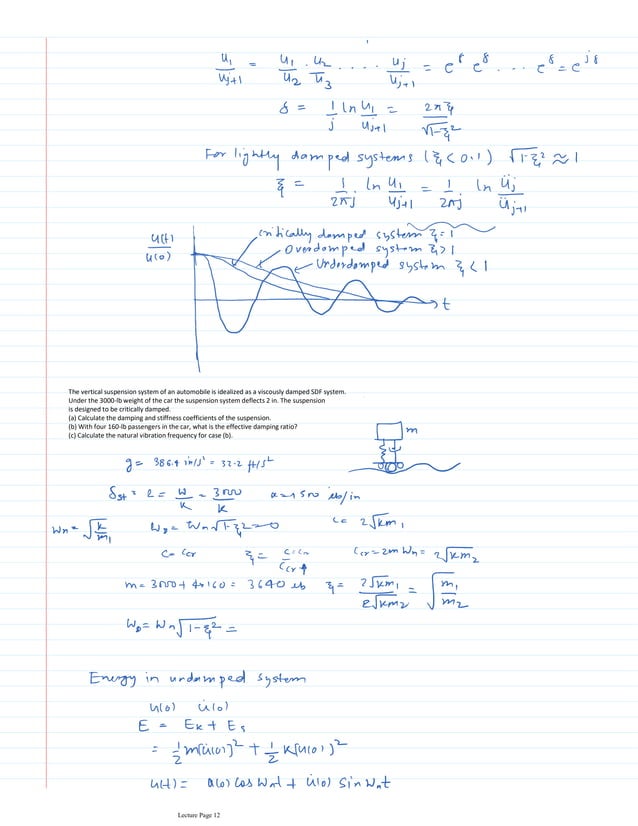 u₁/u_{j+1} = u₁/u₂ · u₂/u₃ · · · · u_j/u_{j+1} = e^δ e^δ · · · e^δ = e^{jδ}
δ = 1/j ln u₁/u_{j+1} = 2πξ/√1-ξ²
For lightly damped systems (ξ < 0.1) √1-ξ² ≈ 1
ξ = 1/2πj ln u₁/u_{j+1} = 1/2πj ln ü_j/ü_{j+1}
u(t)/u(0)
critically damped system ξ = 1
Overdamped system ξ > 1
Underdamped system ξ < 1
t
The vertical suspension system of an automobile is idealized as a viscously damped SDF system.
Under the 3000-lb weight of the car the suspension system deflects 2 in. The suspension
is designed to be critically damped.
(a) Calculate the damping and stiffness coefficients of the suspension.
(b) With four 160-lb passengers in the car, what is the effective damping ratio?
(c) Calculate the natural vibration frequency for case (b).
m
g = 386.4 in/s² = 32.2 ft/s²
δst = 2 = W/K = 3000/K 1500 lb/in
Wn = √k/m₁ W_D = Wn√1-ξ² = 0 C = 2√km₁
C = Ccr ξ = Ccr Ccr = 2m Wn = 2√km₂
m = 3000 + 4×160 = 3640 lb ξ = 2√km₁/2√km₂ = √m₁/m₂
W_D = Wn√1-ξ² =
Energy in undamped system
u(0) u̇(0)
E = E_K + E_s
= ½m[u̇(0)]² + ½K[u(0)]²
u(t) = u(0) cos Wnt + u̇(0) sin Wnt
Lecture Page 12